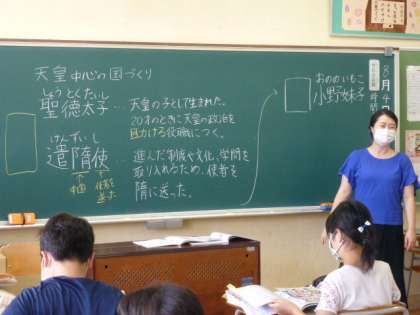 天皇中心の国づくり
しょうとくたいし
聖徳太子…天皇の子として生まれた。
20才のときに天皇の政治を
助ける役職につく。
けんずいし
遣隋使…進んだ制度や文化、学問を
取り入れるため、使者を
隋に送った。
中国
使者を
送る
おののいもこ
小野妹子
8月4日